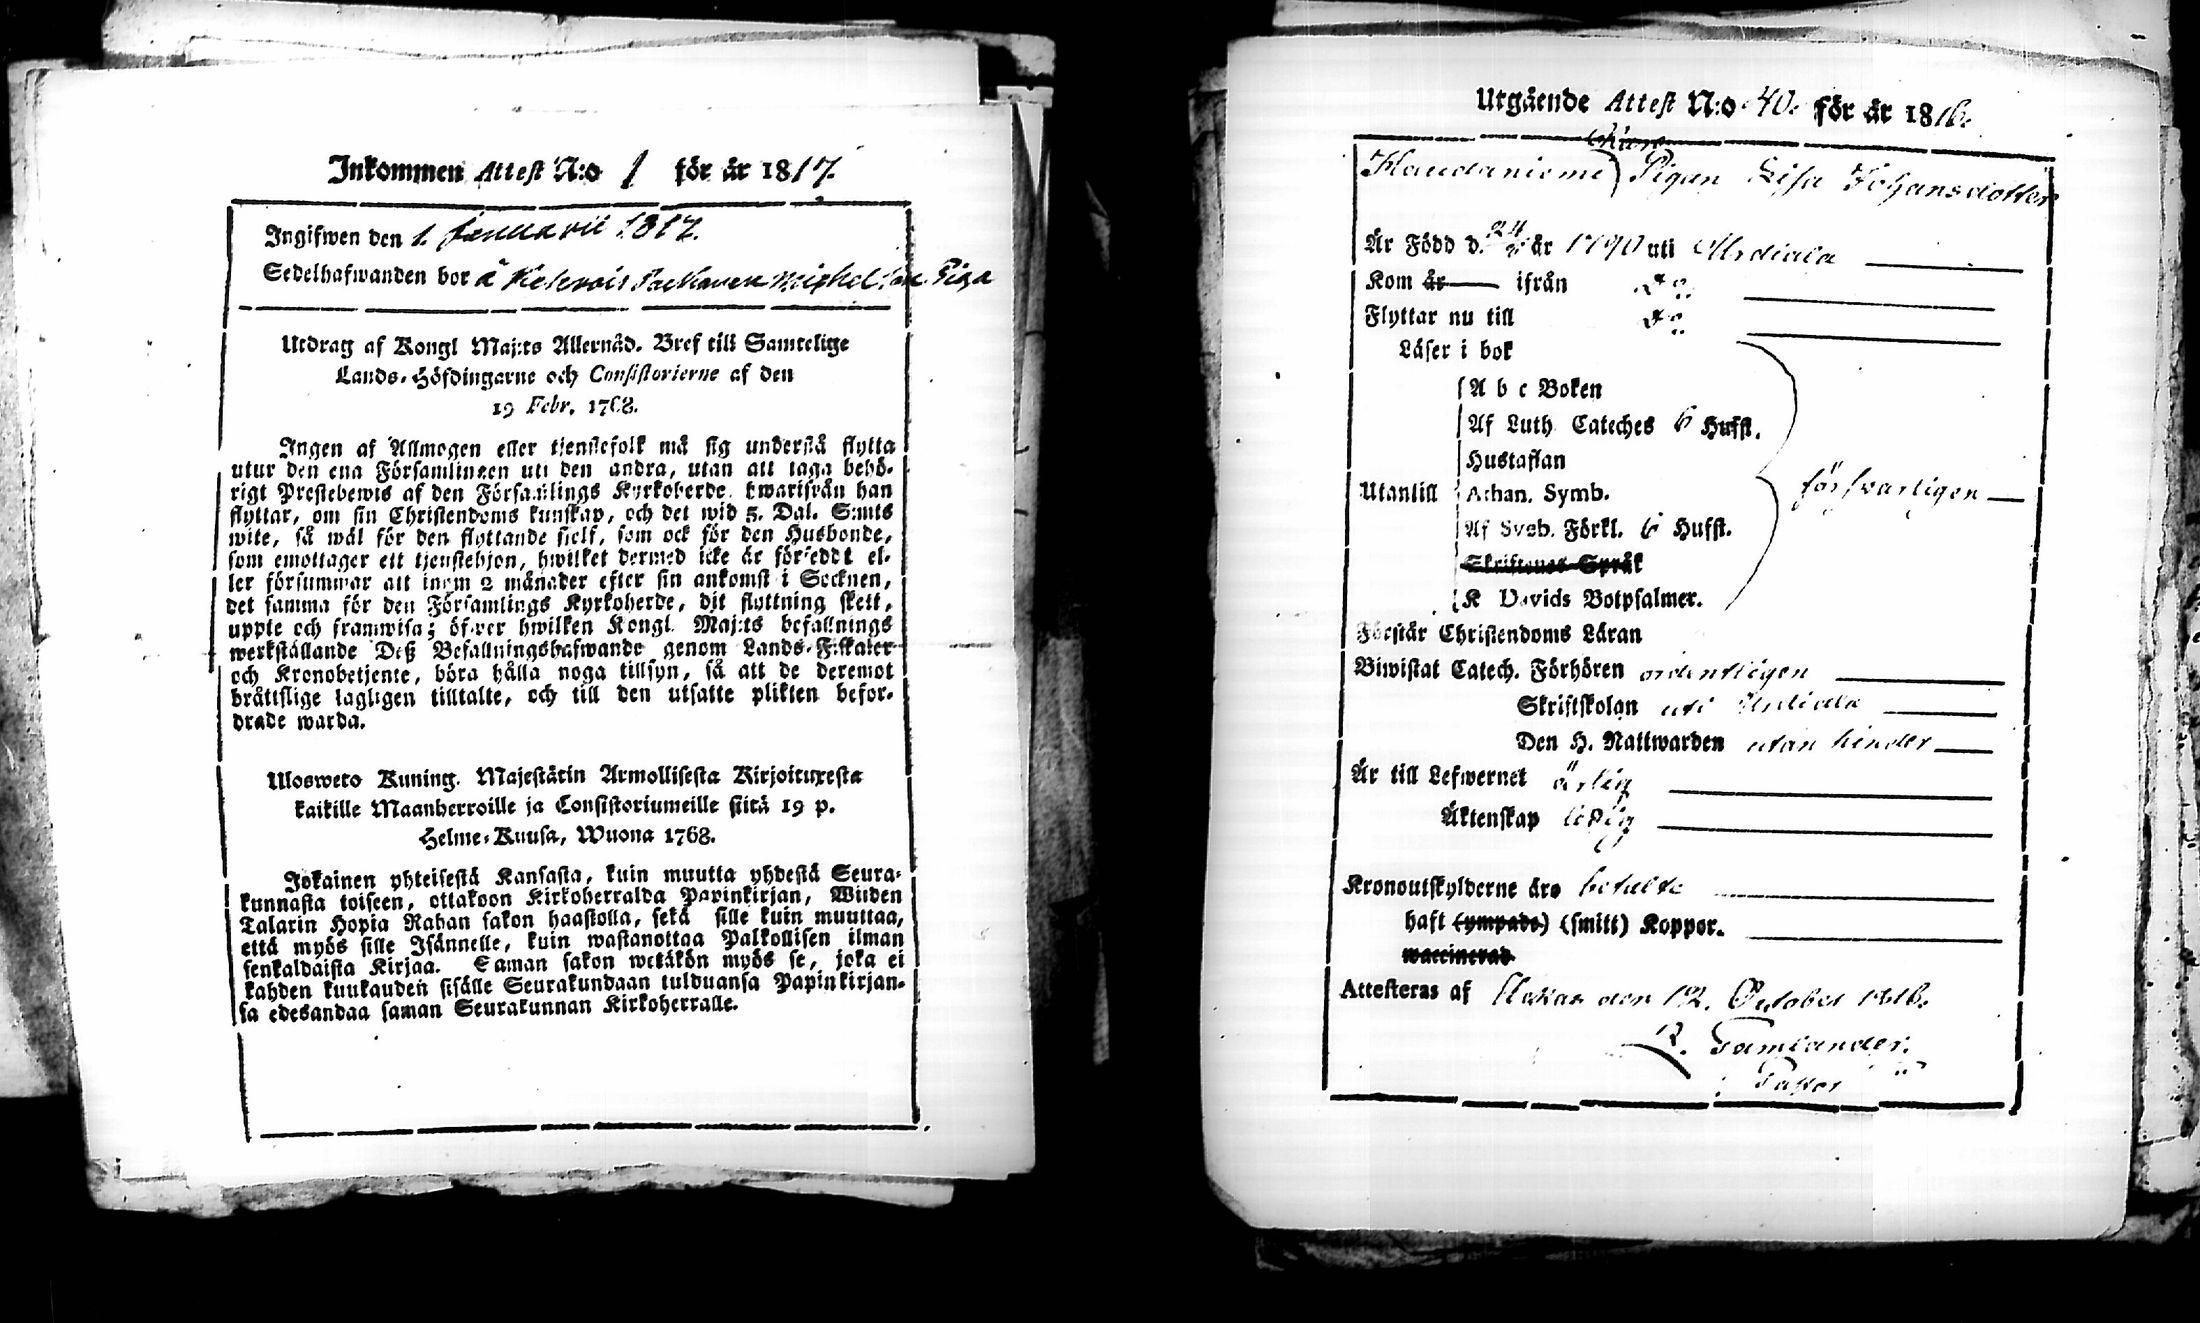 Inkommen Attest N:o 1 för år 1817.
Ingifwen den 1. Januarii 1817.
Sedelhafwanden bor å Michelsson Piga
Utdrag af Kongl Maj:ts Allernåd. Bref till Samtelige
Lands-Höfdingarne och Consistorierne af den
19 Febr. 1768.
Ingen af Allmogen eller tjenstefolk må sig understå flytta
utur den ena Församlingen uti den andra, utan att taga behö-
rigt Prestebewis af den Församlings Kyrkoherde, hwarifrån han
flyttar, om sin Christendoms kunskap, och det wid 5. Dal. S:mts
wite, så wäl för den flyttande sjelf, som ock för den Husbonde,
som emottager ett tjenstehjon, hwilket dermed icke är förseddt el-
ler försummar att inom 2 månader efter sin ankomst i Socknen,
det samma för den Församlings Kyrkoherde, dit flyttning skett,
uppte och framwisa; öfwer hwilken Kongl. Maj:ts befallnings
werkställande Deß Befallningshafwande genom Lands-Fiskaler
och Kronobetjente, böra hålla noga tillsyn, så att de deremot
bråttslige lagligen tilltalte, och till den utsatte plikten befor-
drade warda.
Ulosweto Kuning. Majestätin Armollisesta Kirjoituxesta
kaikille Maanherroille ja Consistoriumeille siitä 19 p.
Helme-Kuusa, Wuona 1768.
Jokainen yhteisestä Kansasta, kuin muutta yhdestä Seura-
kunnasta toiseen, ottakoon Kirkoherralda Papinkirjan, Wiiden
Talarin Hopia Rahan sakon haastolla, sekä sille kuin muuttaa,
että myös sille Isännelle, kuin wastanottaa Palkollisen ilman
senkaldaista Kirjaa. Saman sakon wetäkön myös se, joka ei
kahden kuukauden sisälle Seurakundaan tulduansa Papinkirjan-
sa edesandaa saman Seurakunnan Kirkoherralle.
Utgående Attest N:o 40. för år 1816.
Haudaniemi Pigan Lisa Johansdotter
Är Född d. 24 år 1790 uti Urdiala
Kom år ifrån d:o
Flyttar nu till d:o
Läser i bok
A b c Boken
Af Luth. Cateches 6 Hufst.
Hustaflan
Utantill Athan. Symb. försvarligen
Af Sveb. Förkl. 6 Hufst.
Skriftenes Språk
K Davids Botpsalmer.
Förstår Christendoms Läran
Biwistat Catech. Förhören ordentligen
Skriftskolan uti Urdiala
Den H. Nattwarden utan hinder
Är till Lefwernet ärlig
Äktenskap ledig
Kronoutskylderne äro betalte
haft (ympade) (smitt) Koppor.
waccinerad
Attesteras af Akkas den 12. October 1816.
Pastor